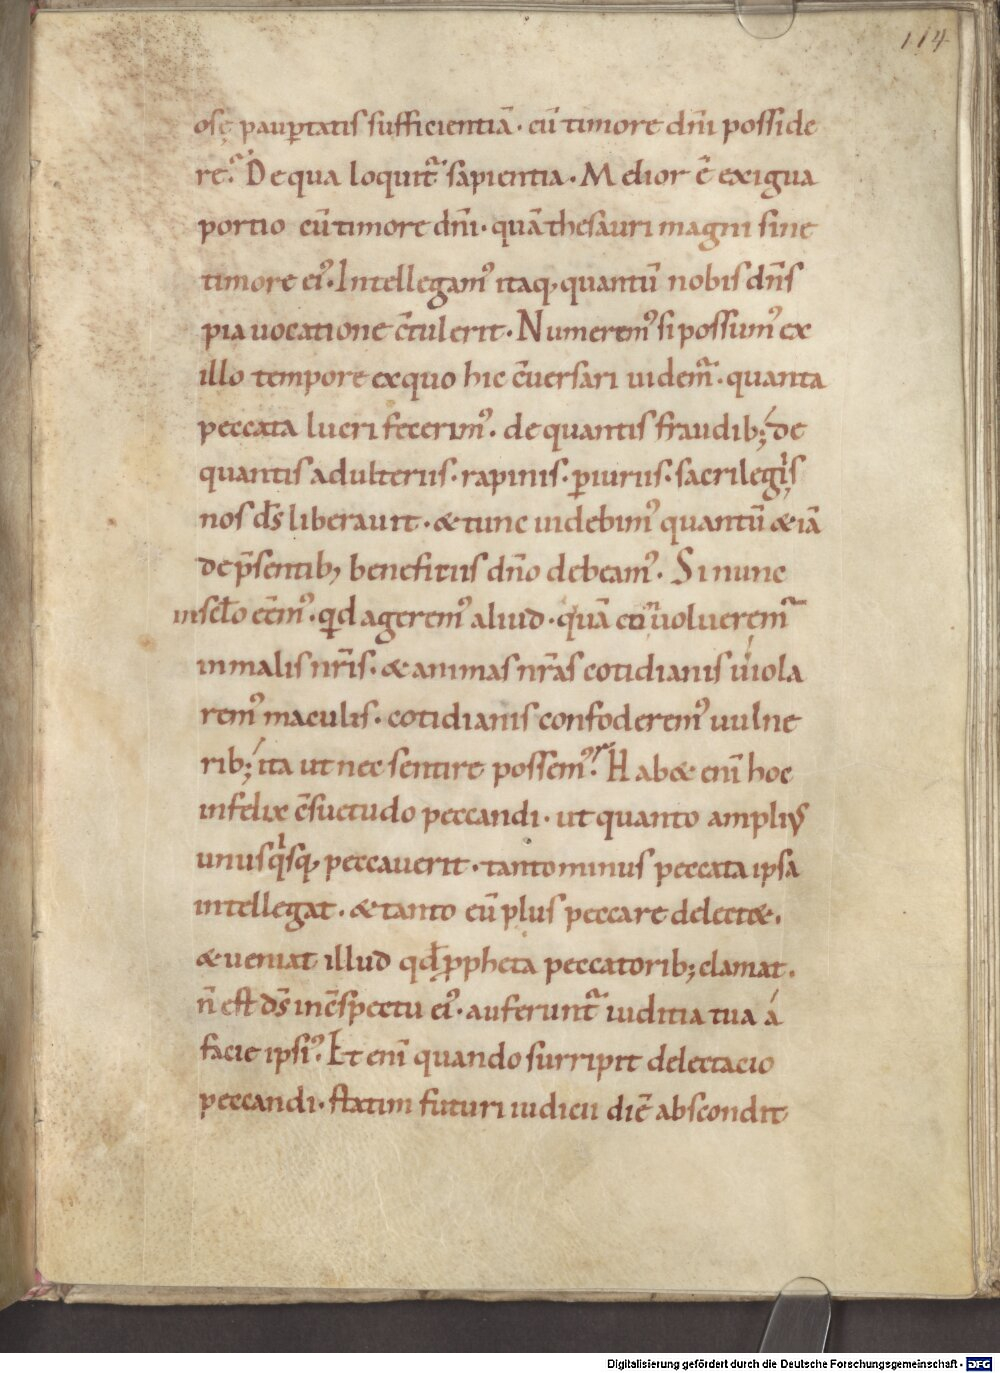 114
osę pauꝑtatis sufficientiā · cū timore dn̄i posside
re. De qua loquit̄ sapientia · Melior ē exigua
portio cū timore dn̄i · quā thesauri magni sine
timore ei᾿. Intellegam᾿ itaq, quantū nobis dn̄s
pia uocatione c̄tulerit · Numerem᾿ si possum᾿ ex
illo tempore exquo hic c̄uersari uidem̄ · quanta
peccata lucri fecerim᾿. de quantis fraudib; de
quantis adulteriis · rapinis · ꝑiuriis · sacrilegiis
nos d̄s liberauit · & tunc uidebim᾿ quantū & iā
de p̄sentib, beneficiis dn̄o debeam᾿. Si nunc
in scl̄o eēm᾿ · qid agerem᾿ aliud · quā ut uolueremur̄
in malis nr̄is · & animas nr̄as cotidianis uiola
rem᾿ maculis · cotidianis confoderem᾿ uulne
rib; ita ut nec sentire possem᾿. Hab& eni hoc
infelix c̄suetudo peccandi · ut quanto ampli᾿
unusqisq, peccauerit · tanto minus peccata ipsa
intellegat · & tanto eū plus peccare delect&.
& ueniat illud qđ ꝓpheta peccatorib; clamat.
n̄ est d̄s in c̄spectu ei᾿ · auferunt̄ iuditia tua á
facie ipsi᾿. Et eni quando surripit delectacio
peccandi · statim futuri iudicii diē abscondit
Digitalisierung gefördert durch die Deutsche Forschungsgemeinschaft - DFG